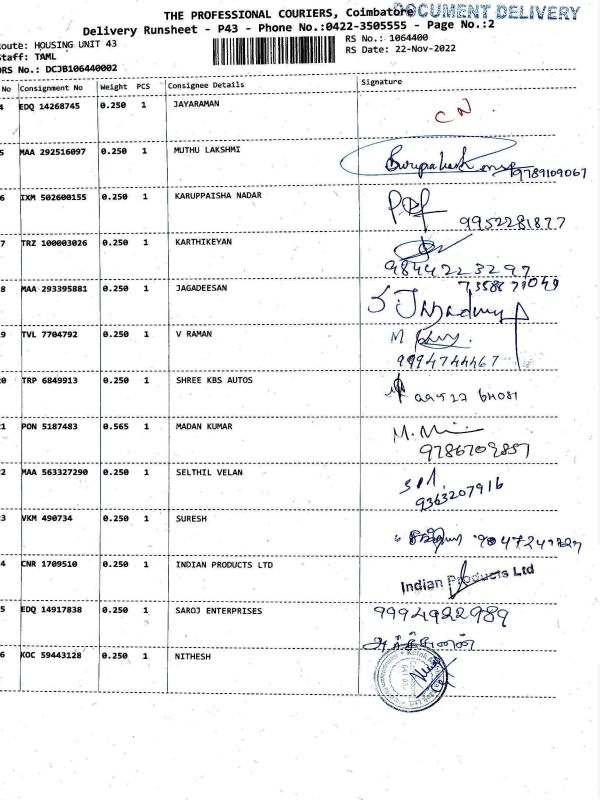 DOCUMENT DELIVERY
THE PROFESSIONAL COURIERS, Coimbatore
Delivery Runsheet - P43 - Phone No.:0422-3505555 - Page No.:2
oute: HOUSING UNIT 43
RS No.: 1064400
Staff: TAML
RS Date: 22-Nov-2022
DRS No.: DCJB106440002
No Consignment No Weight PCS Consignee Details Signature
4 EDQ 14268745 0.250 1 JAYARAMAN
CN
5 MAA 292516097 0.250 1 MUTHU LAKSHMI
9789109067
6 IXM 502600155 0.250 1 KARUPPAISHA NADAR
9952281877
7 TRZ 100003026 0.250 1 KARTHIKEYAN
9844223297
8 MAA 293395881 0.250 1 JAGADEESAN
7358671049
9 TVL 7704792 0.250 1 V RAMAN
9994744467
0 TRP 6849913 0.250 1 SHREE KBS AUTOS
1 PON 5187483 0.565 1 MADAN KUMAR
9786709857
2 MAA 563327290 0.250 1 SELTHIL VELAN
9363207916
3 VKM 490734 0.250 1 SURESH
4 CNR 1709510 0.250 1 INDIAN PRODUCTS LTD
Indian Products Ltd
5 EDQ 14917838 0.250 1 SAROJ ENTERPRISES
9994922989
6 KOC 59443128 0.250 1 NITHESH